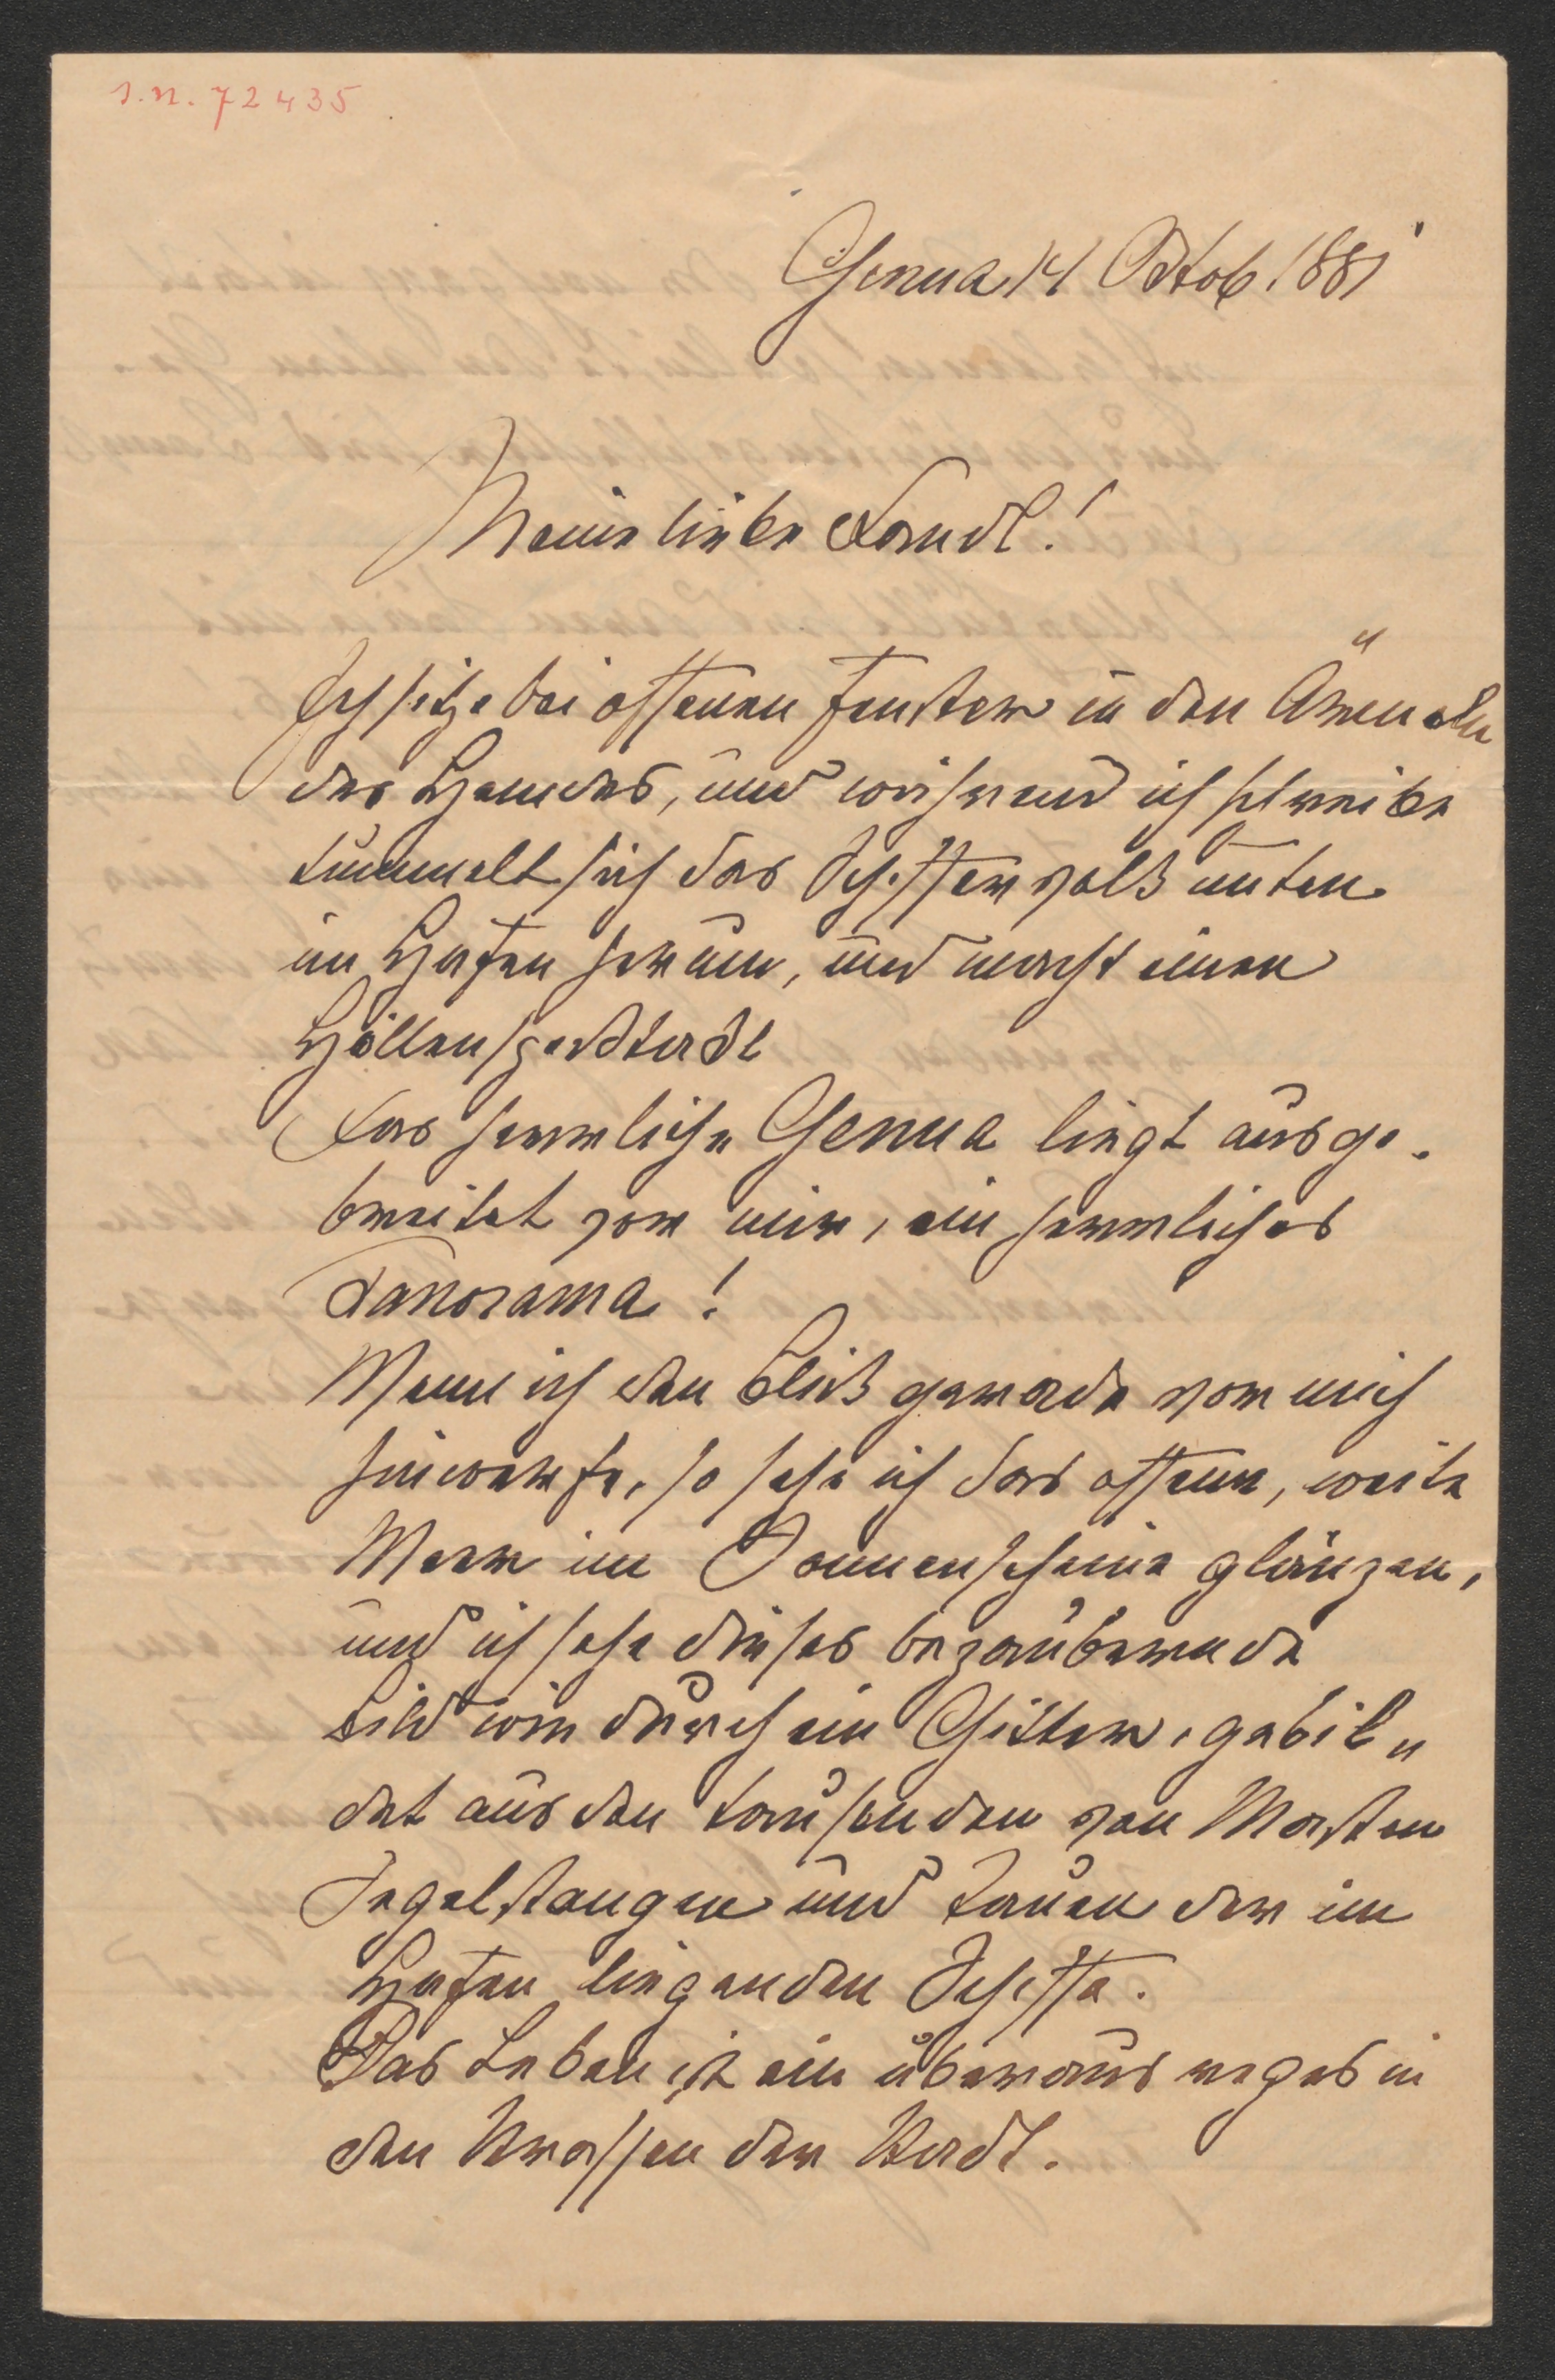 I.N. 72435
Genua 14 Octob. 1881
Meine liebe
Ich sitze bei offenen Fenster in den Ärmeln
des Hemdes, und während ich schreibe
tummelt sich das Schiffervolk unten
im Hafen herum, und macht einen
Höllenspectakl
Das herrliche Genua liegt ausge-
breitet vor mir, ein herrliches
Panorama!
Wenn ich den Blick gerade vor mich
hinwerfe, so sehe ich das offene, weite
Meer im Sonnenscheine glänzen,
und ich sehe dieses bezaubernde
Bild wie durch ein Gitter, gebil„
det aus den tausenden von Masten
Segelstangen und Tauen der im
Hafen liegenden Schiffe.
Das Leben ist ein überaus reges in
den Strassen der Stadt.